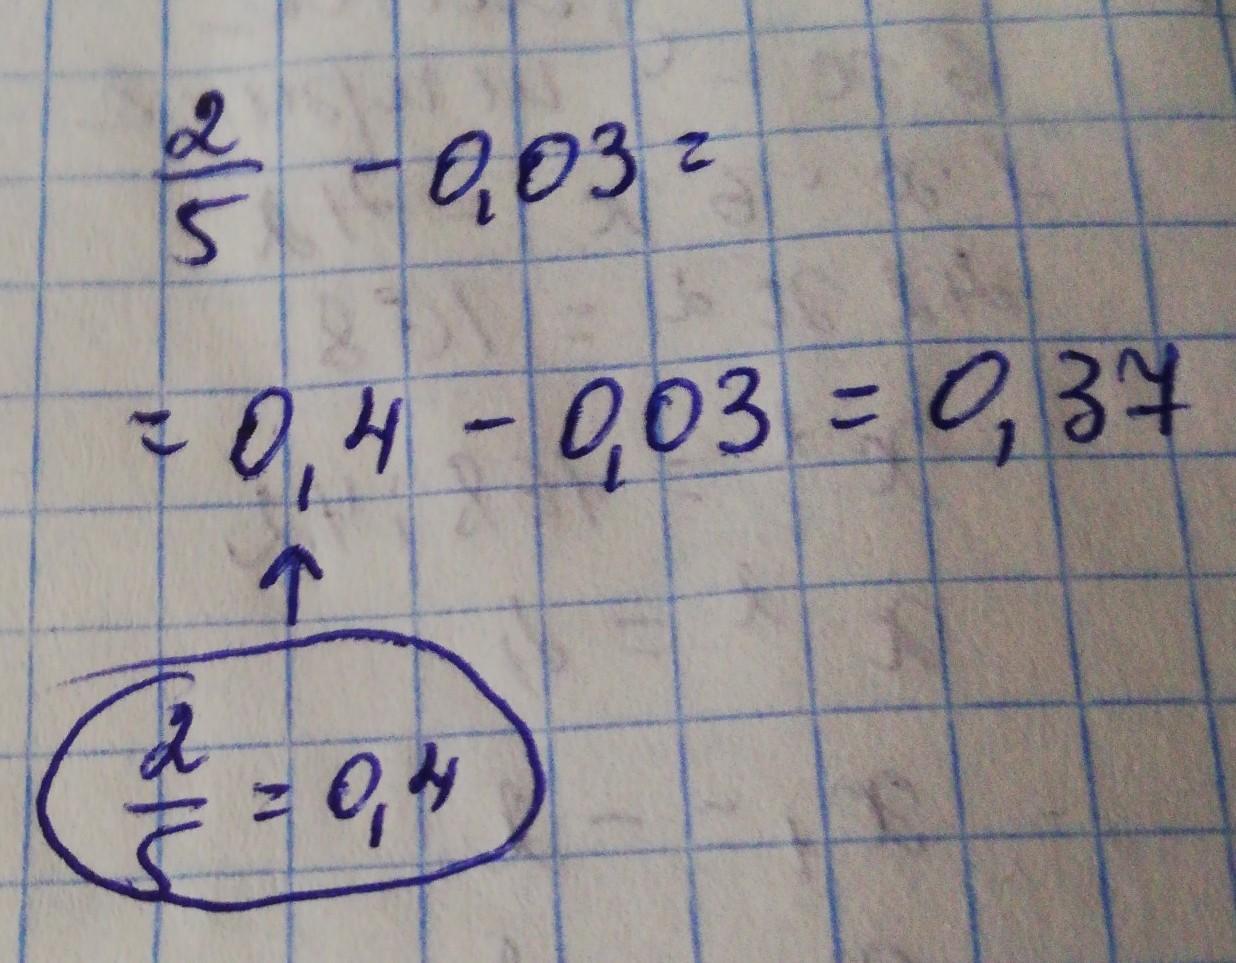 2/5 - 0,03 =
= 0,4 - 0,03 = 0,37
↑
2/5 = 0,4